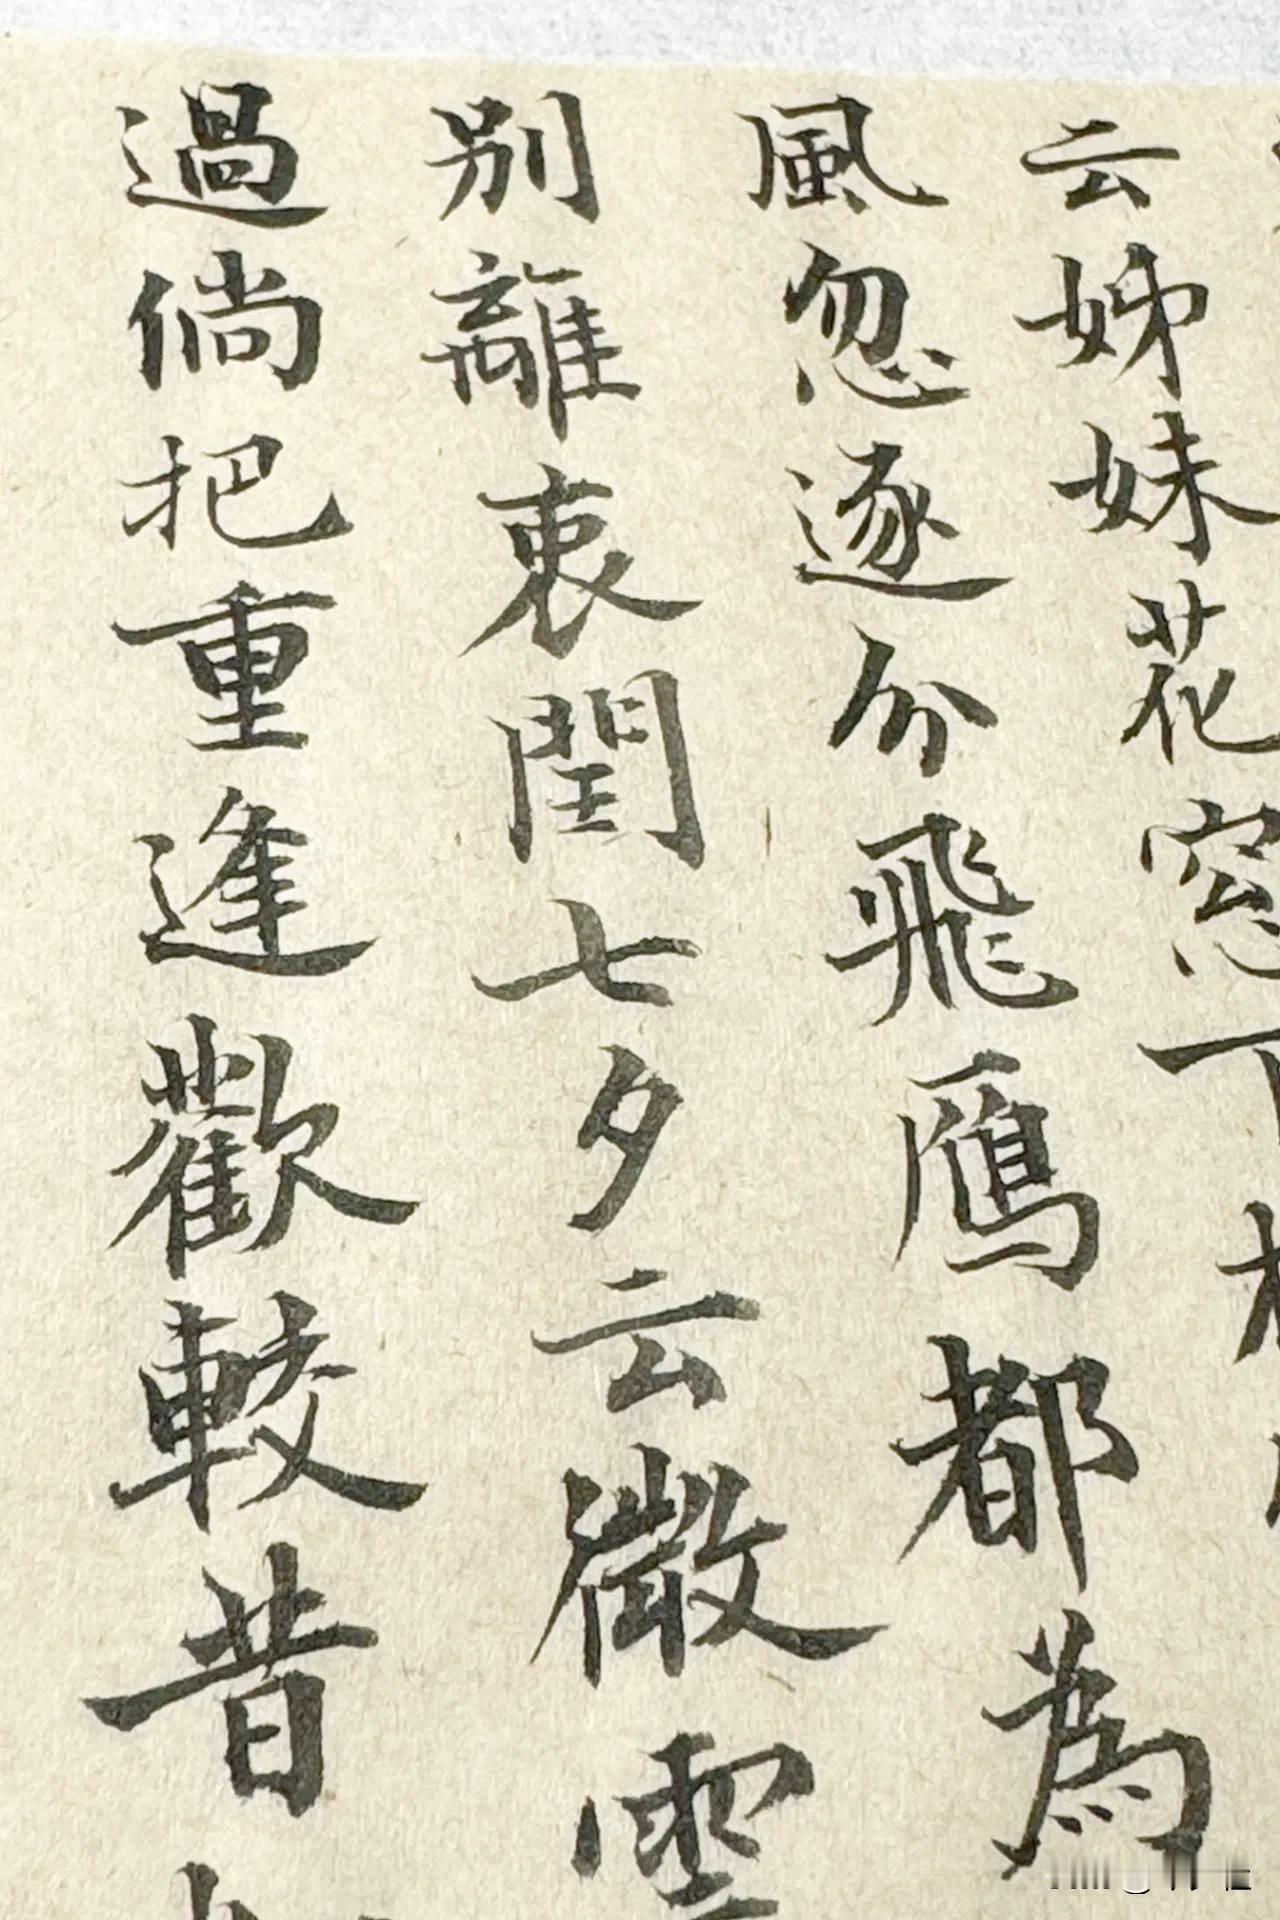 云姊妹花窓下
風忽逐分飛鴈都為
別離衷閏七夕云微雲
過倘把重逢歡較昔